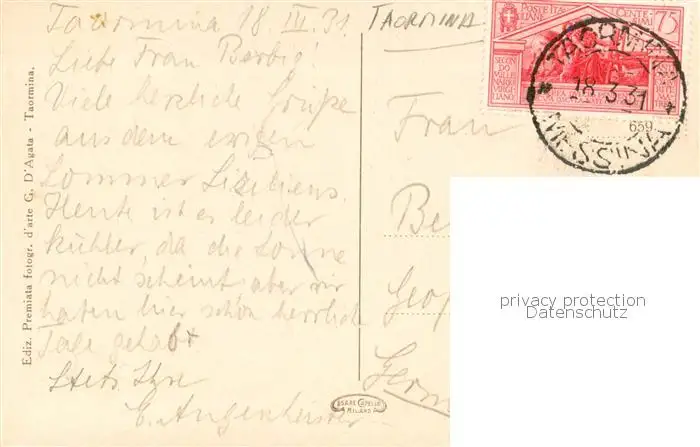 Taormina 18. III. 31.
Liebe Frau Berbig!
Viele herzliche Grüße
aus dem ewigen
Sommer Siziliens.
Heute ist es leider
kühler, da die Sonne
nicht scheint, aber wir
haben hier schön herrliche
Tage gehabt
Stets Ihre
TAORMINA
POSTE ITALIANE
CENT
75
SECON
DO MILLEN
NARIO VIR
GILIANO
TAORMINA
18.3.31
MESSINA
659
Frau
Be
Geo
Germ
Ediz. Premiata fotogr. d'arte G. D'Agata - Taormina.
CESARE CAPELLO
MILANO
privacy protection
Datenschutz